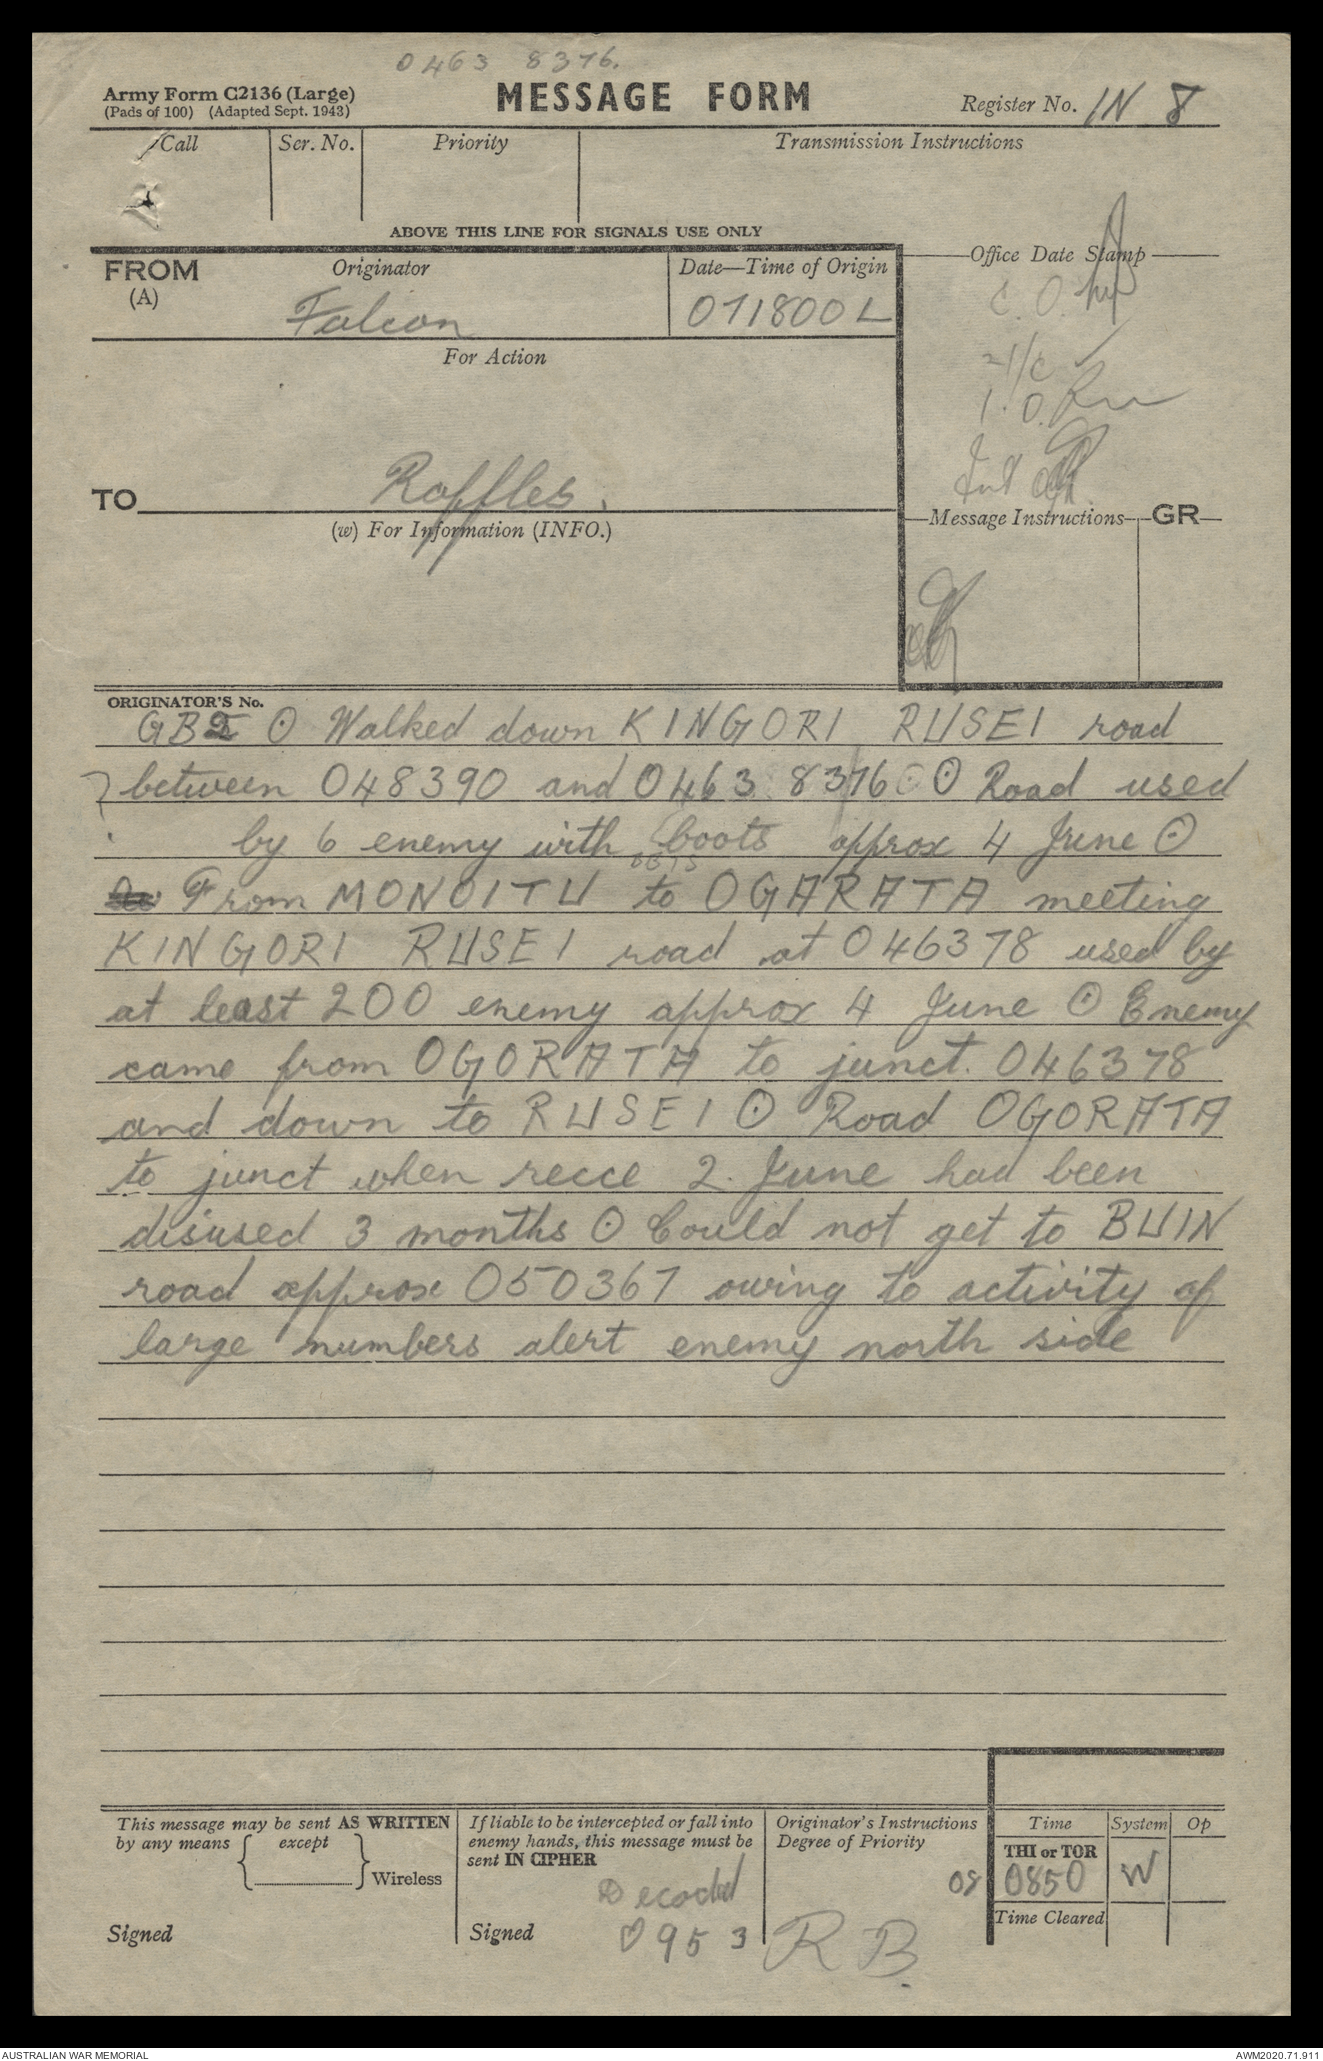 0463 8376.
Army Form C2136 (Large)
(Pads of 100) (Adapted Sept. 1943)
MESSAGE FORM
Register No. IN 8
Call
Ser. No.
Priority
Transmission Instructions
ABOVE THIS LINE FOR SIGNALS USE ONLY
FROM
(A)
Originator
Falcon
Date—Time of Origin
071800L
Office Date Stamp
C.O.
2 I/C ✓
I.O.
Int
For Action
TO
Raffles.
(w) For Information (INFO.)
Message Instructions
GR
ORIGINATOR'S No.
GB2 ⊙ Walked down KINGORI RUSEI road
between 048390 and 0463 8376 ⊙ Road used
by 6 enemy with boots approx 4 June ⊙
From MONOITU to OGARATA meeting
KINGORI RUSEI road at 046378 used by
at least 200 enemy approx 4 June ⊙ Enemy
came from OGORATA to junct. 046378
and down to RUSEI ⊙ Road OGORATA
to junct when recce 2. June had been
disused 3 months ⊙ Could not get to BUIN
road approx 050367 owing to activity of
large numbers alert enemy north side
This message may be sent AS WRITTEN
by any means { except } Wireless
Signed
If liable to be intercepted or fall into
enemy hands, this message must be
sent IN CIPHER
Decoded
Signed
0953
Originator's Instructions
Degree of Priority
08
RB
Time
System
Op
THI or TOR
0850
W
Time Cleared
AUSTRALIAN WAR MEMORIAL
AWM2020.71.911